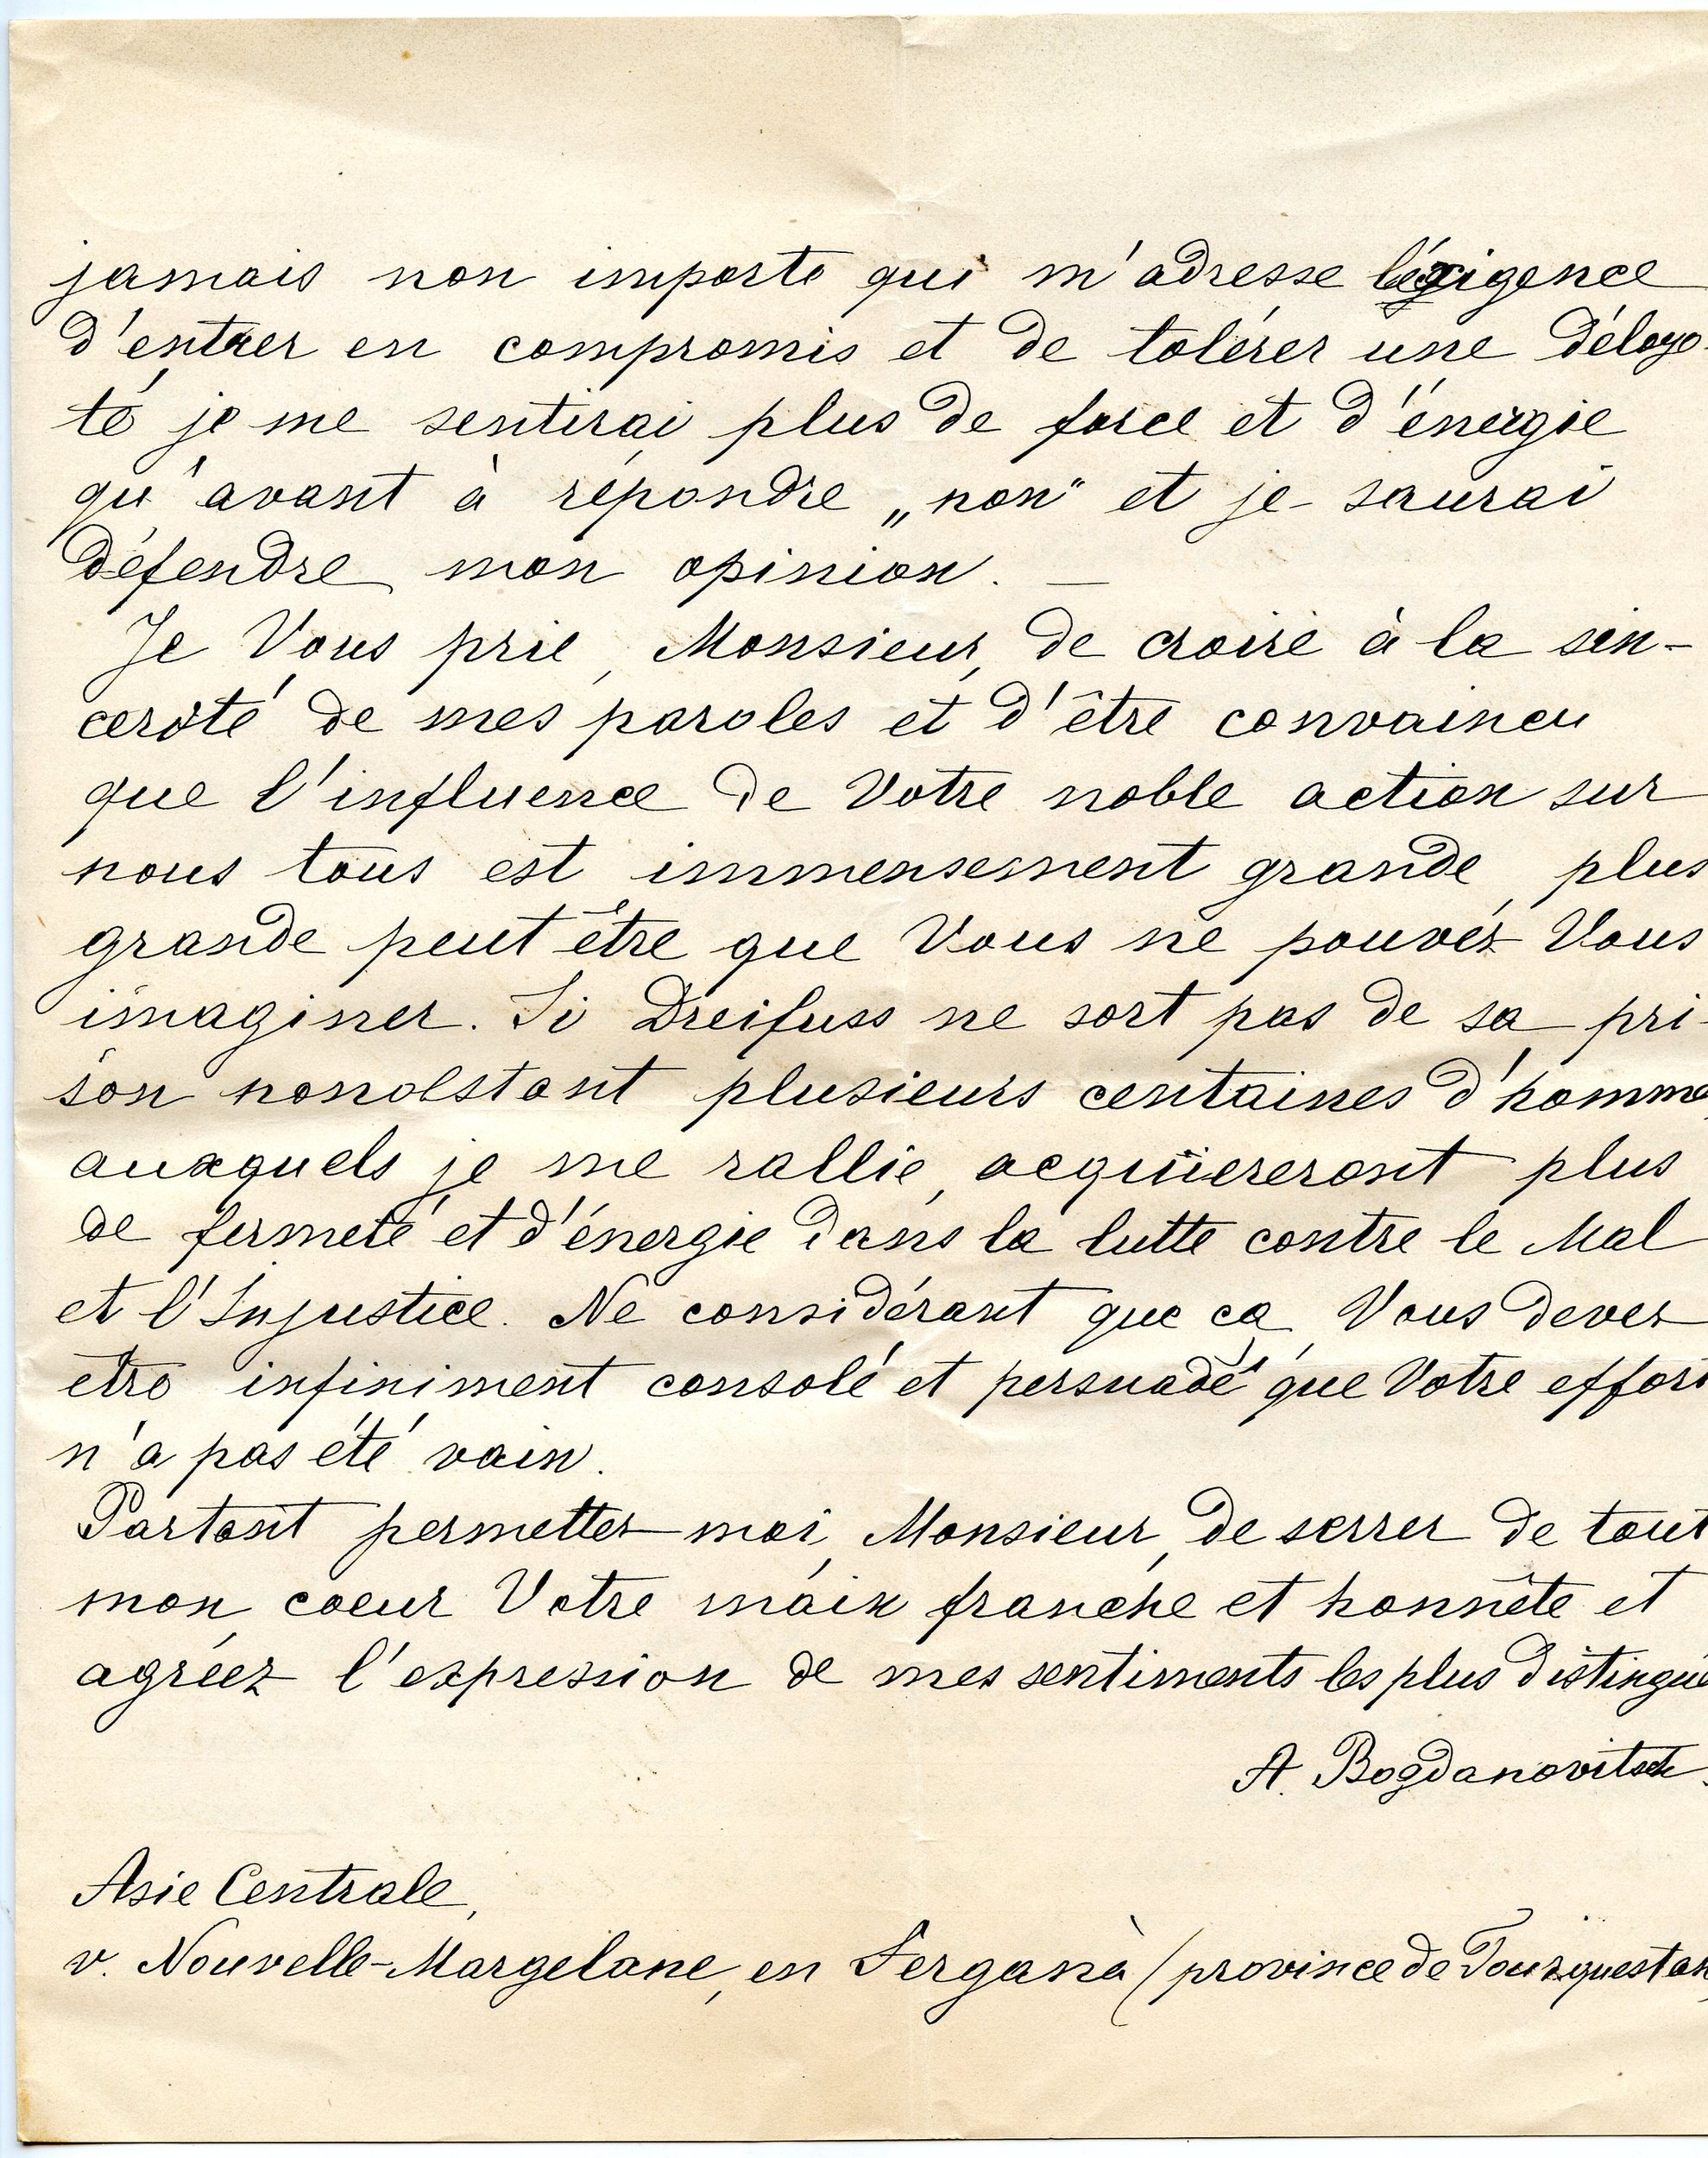 jamais non importe qui m'adresse l'éxigence
d'entrer en compromis et de tolérer une déloyo
té je me sentirai plus de force et d'énergie
qu'avant à répondre „non“ et je saurai
défendre mon opinion. —
Je Vous prie, Monsieur, de croire à la sin-
cerité de mes paroles et d'être convaincu
que l'influence de Votre noble action sur
nous tous est immensement grande, plus
grande peut être que Vous ne pouvez Vous
imaginer. Si Dreifuss ne sort pas de sa pri-
son nonobstant plusieurs centaines d'homme
auxquels je me rallie, acquiereront plus
de fermeté et d'énergie dans la lutte contre le Mal
et l'Injustice. Ne considérant que ça, Vous devez
etre infiniment consolé et persuadé que Votre effort
n'a pas été vain.
Partant permettez moi, Monsieur, de serrer de tout
mon coeur Votre main franche et honnête et
agréez l'expression de mes sentiments les plus distingué
A. Bogdanovitsch.
Asie Centrale,
v. Nouvelle-Margelane, en Ferganà (province de Tourquestan